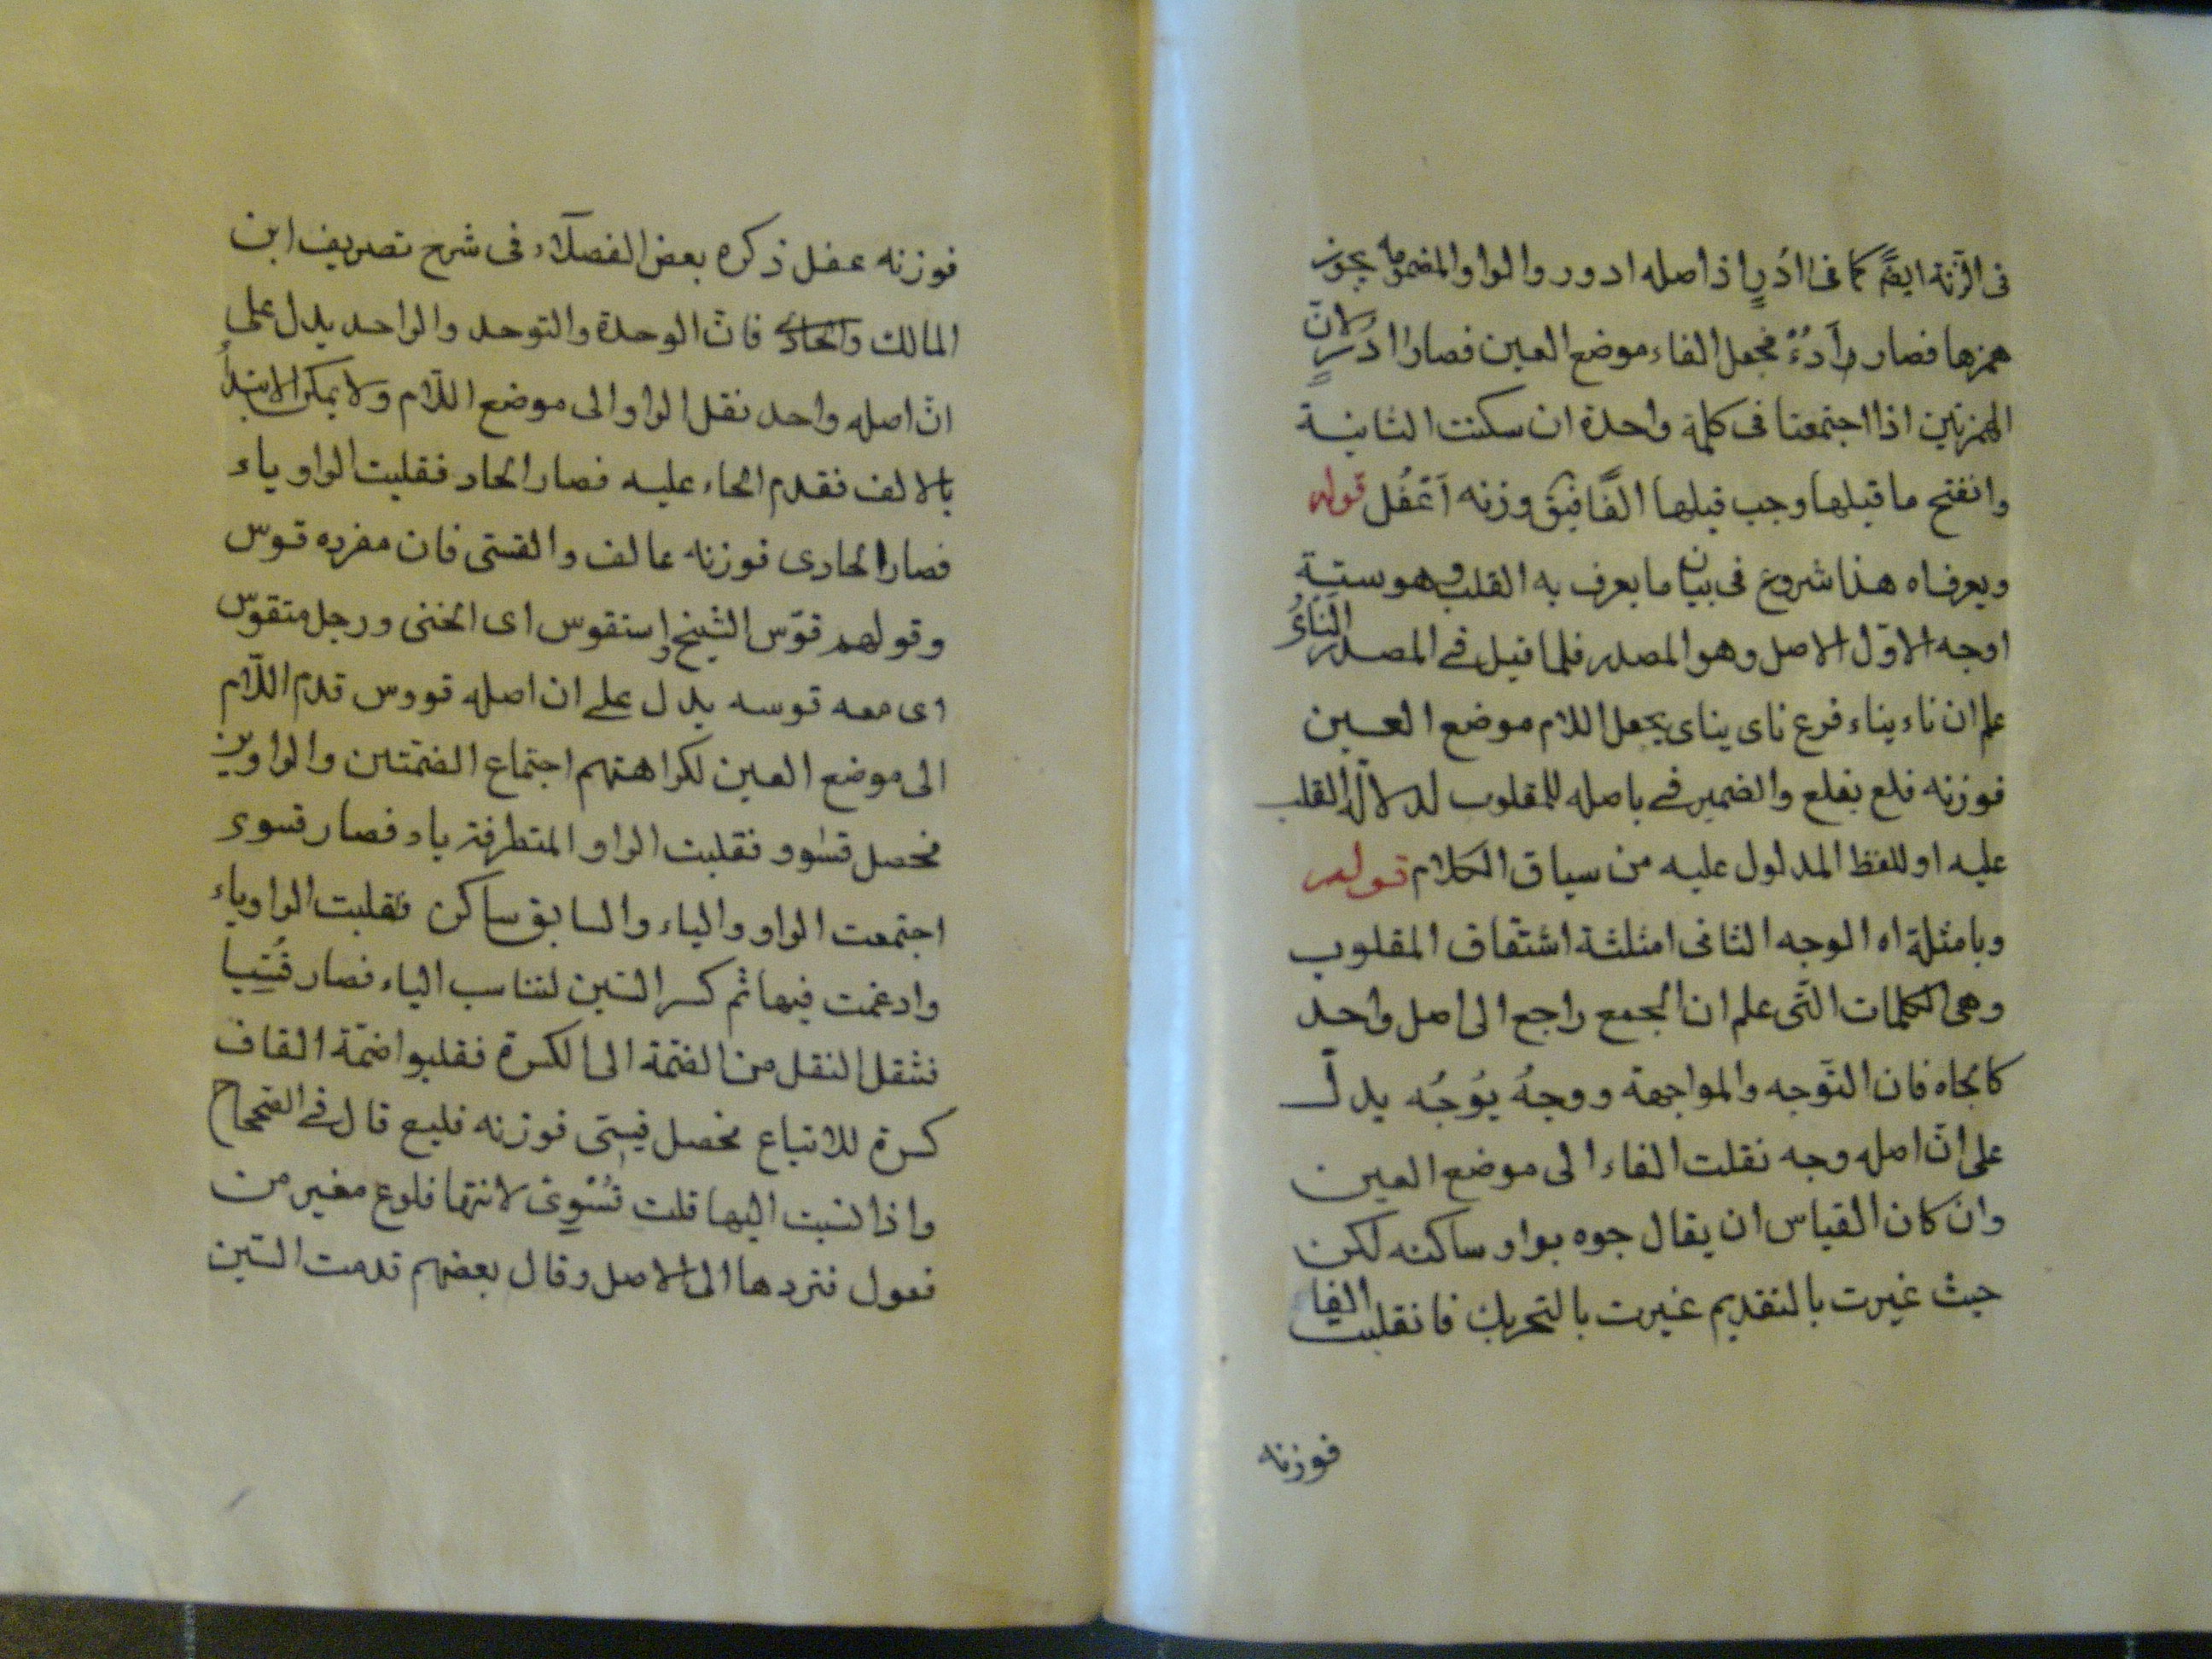 فى الزنة ايضًا كما فى اادُرٍ اذ اصله ادور والواو المضمومة يجوز
همزها فصار أدءر فجعل الفاء موضع العين فصار اادر لانّ
الهمزتين اذا اجتمعتا فى كلمة واحدة ان سكنت الثانية
وانفتح ما قبلها وجب قبلها الفًا فبقى وزنه اَعْفُل قوله
ويعرف اه هذا شروع فى بيان ما يعرف به القلب وهو ستة
اوجه الاوّل الاصل وهو المصدر فلما قيل فى المصدر الناءُ
علم ان ناء يناء فرع ناى يناى بجعل اللام موضع العين
فوزنه فلع يفلع والضمير فى باصله للمقلوب لدلالة القلب
عليه او للفظ المدلول عليه من سياق الكلام قوله
وبامثلة اه الوجه الثانى امثلثة اشتقاق المقلوب
وهى الكلمات التّى علم ان الجمع راجع الى اصل واحد
كالجاه فان التوجه والمواجهة ووجهُ يوُجُه يدلّ
على انّ اصله وجه نقلت الفاء الى موضع العين
وان كان القياس ان يقال جوه بواو ساكنه لكن
حيث غيرت بالتقديم غيرت بالتحريك فانقلبت الفا
فوزنه
فوزنه عفل ذكره بعض الفضلآء فى شرح تصريف ابن
المالك والحادى فانّ الوحدة والتوحد والواحد يدل على
انّ اصله واحد نقل الواو الى موضع اللّام ولا يمكن الابتداُ
بالالف فقدم الحاء عليه فصار الحادو فقلبت الواو ياء
فصار الحادى فوزنه عالف والقسى فان مفرده قوس
وقولهم قوّس الشيخ واستقوس اى انحنى ورجل متقوّس
اى معه قوسه يدل على ان اصله قووس قدم اللّام
الى موضع العين لكراهتهم اجتماع الضمّتين والواوين
فحصل قسوو فقلبت الواو المتطرفة ياء فصار قسوى
اجتمعت الواو والياء والسابق ساكن فقلبت الواو ياء
وادغمت فيها ثم كسر السّين لتناسب الياء فصار قُسِيا
فثقل النقل من الضمّة الى الكسرة فقلبوا ضمّة القاف
كسرة للاتباع فحصل قِسِىّ فوزنه فليع قال فى الصّحاح
واذا نسبت اليها قلت قُسْوِىّ لانّها فلوع مغير من
فعول فتردها الى الاصل وقال بعضهم قدمت السّين